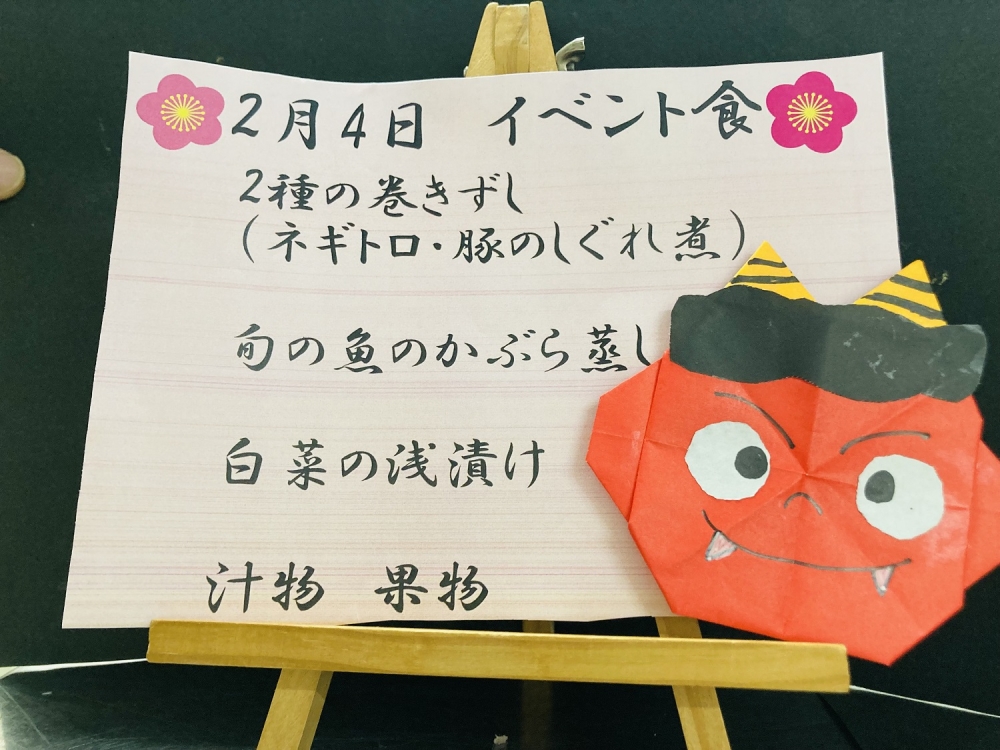 2月4日 イベント食
2種の巻きずし
(ネギトロ・豚のしぐれ煮)
旬の魚のかぶら蒸し
白菜の浅漬け
汁物 果物